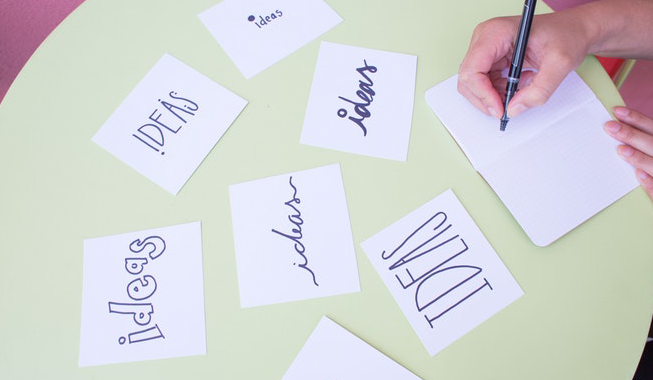 ideas
IDEAS
ideas
ideas
IDEAS
ideas